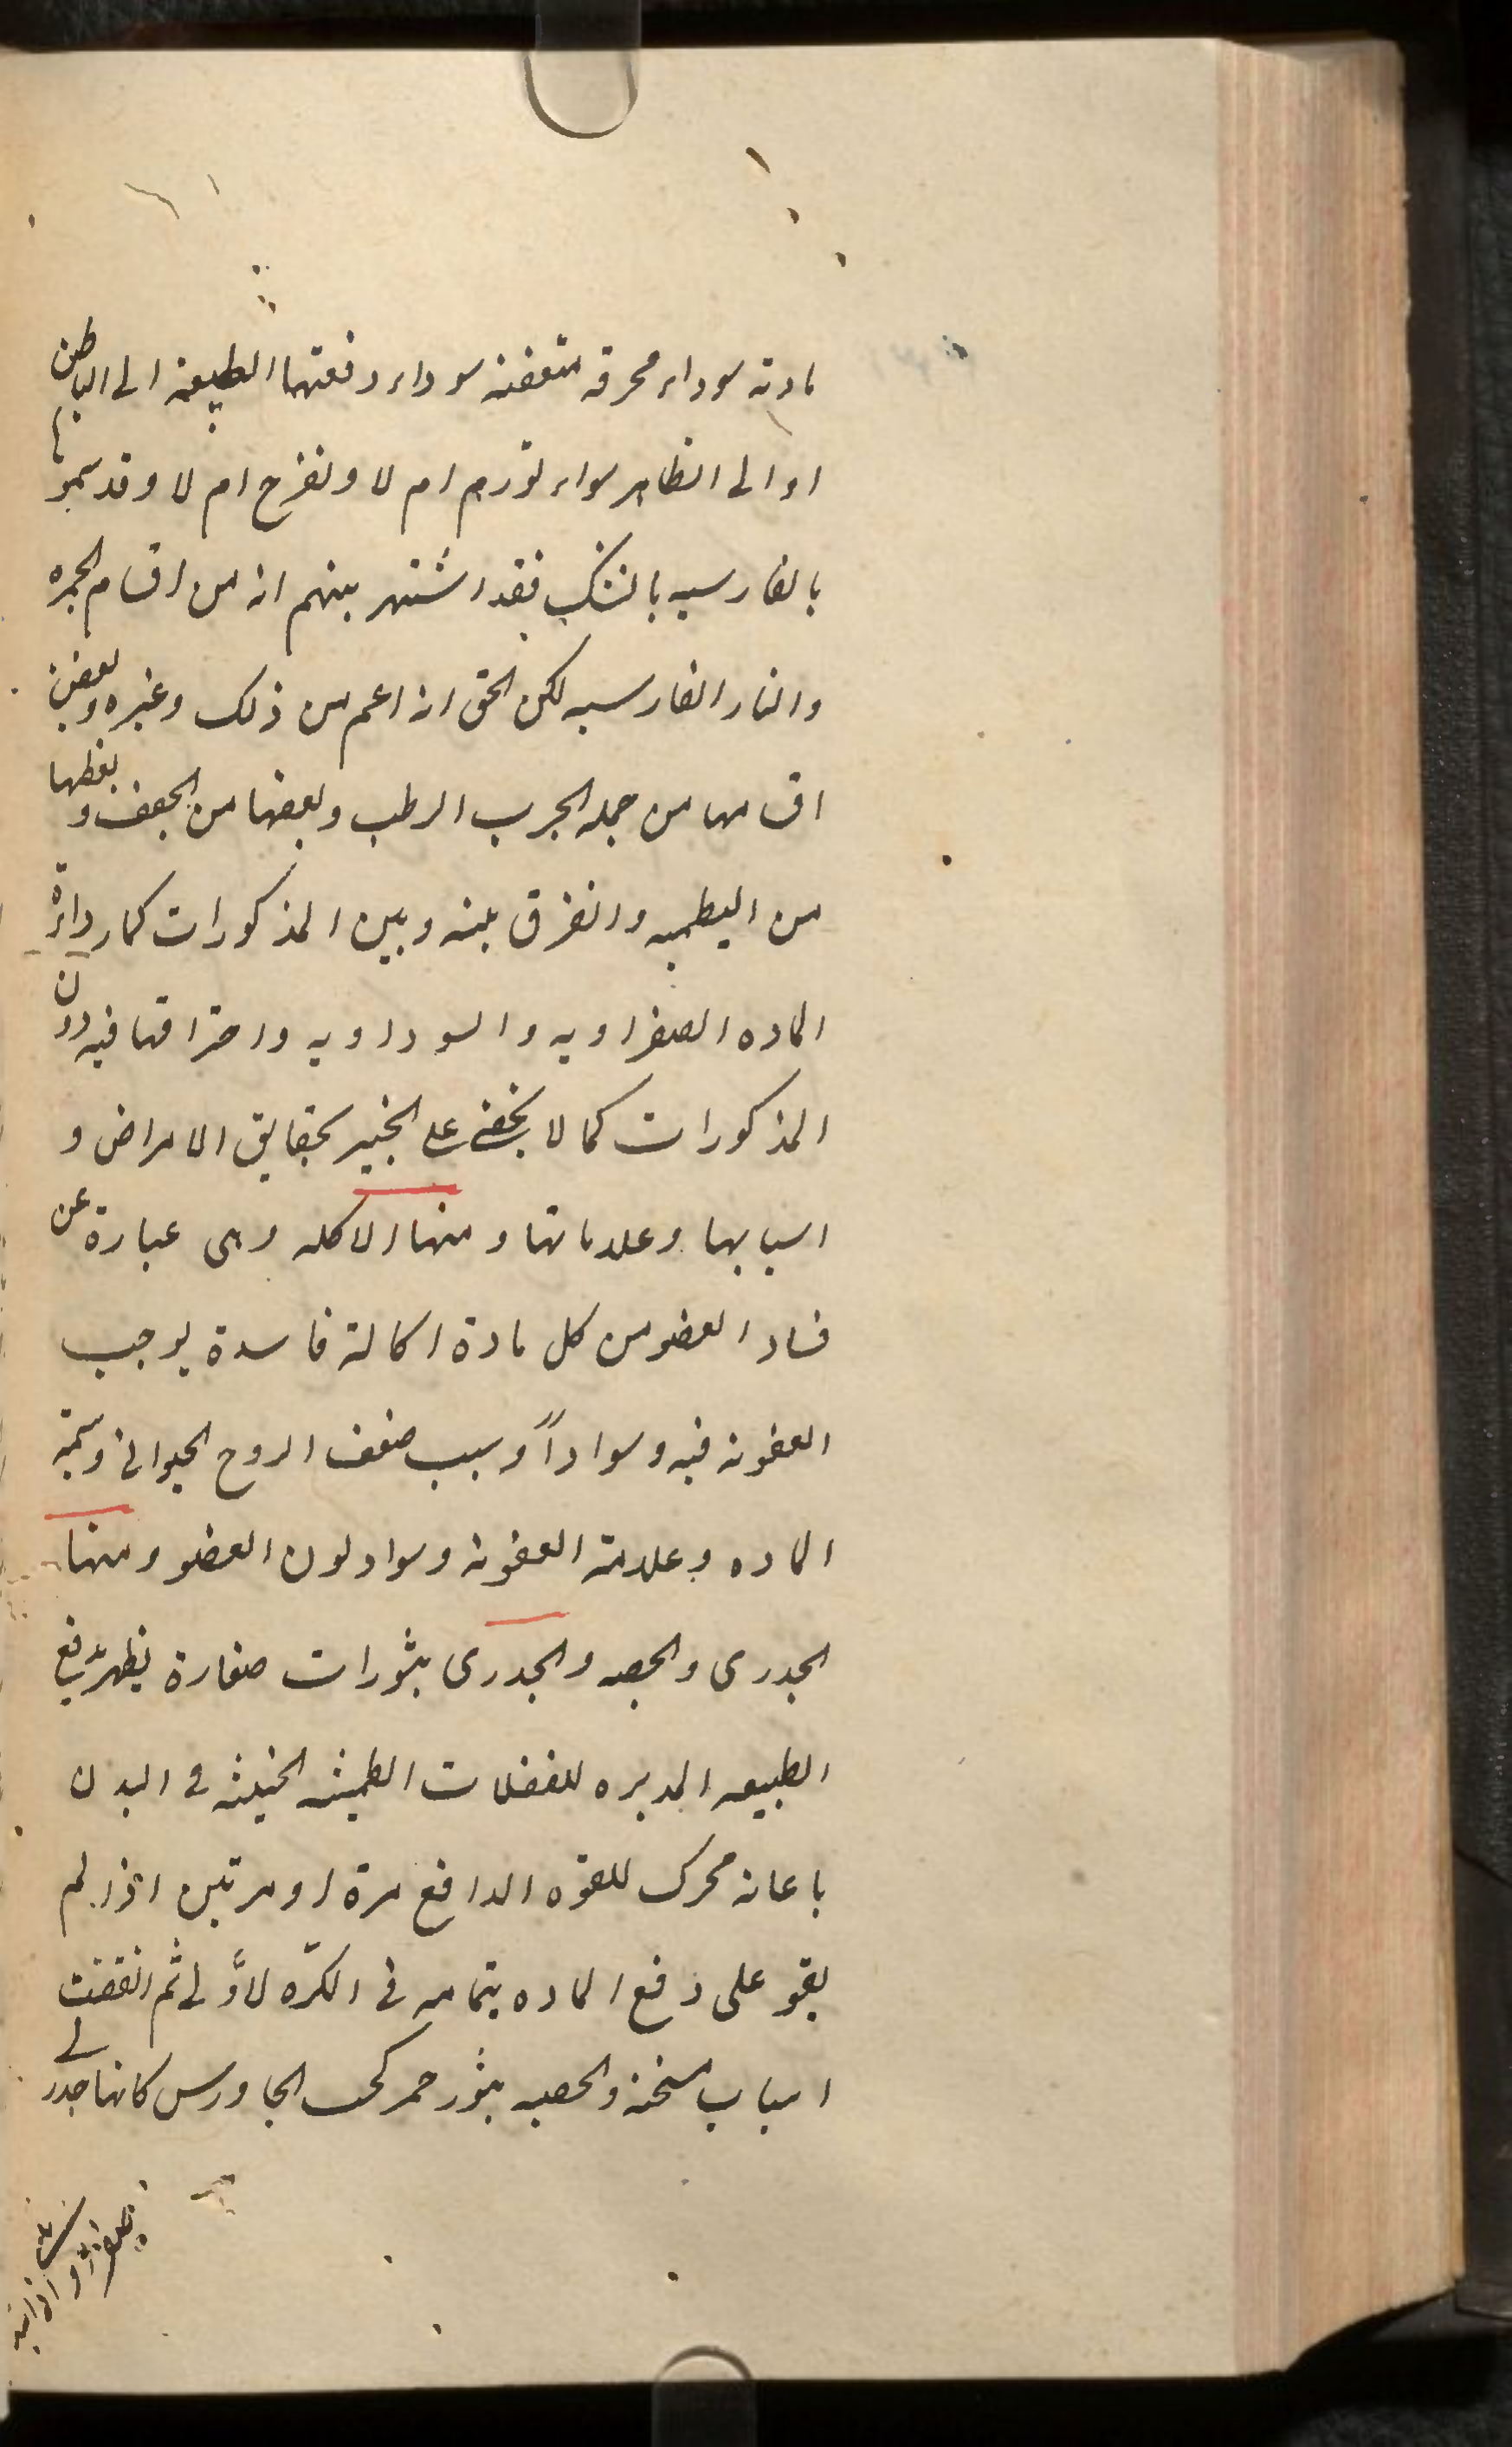 مادته سوداء محرقه متعفنه سوداء دفعتها الطبيعة الى الباطن
او الى الظاهر سواء تورم ام لا وتقرح ام لا وقد سموتها
بالفارسيه بالنشك فقد اشتهر بينهم انه من اقسام الجمره
والنار الفارسيه لكن الحق انه اعم من ذلك وغيره وبعض
اقسامها من جمله الجرب الرطب وبعضها من الجعف وبعظها
من البطميه والفرق بينه وبين المذكورات كما رداءة
الماده الصفراويه والسوداويه واحتراقها فيه دون
المذكورات كما لا يخفى على الخبير بحقايق الامراض و
اسبابها وعلاماتها ومنها الاكله وهى عبارة عن
فساد العضو من كل مادة اكالة فاسدة يوجب
العفونه فيه وسواداً وسبب ضعف الروح الحيوانى وسمية
الماده وعلامته العفونه وسواد لون العضو ومنها
الجدرى والحصبه والجدرى بثورات صغارة يظهر بدفع
الطبيعه المدبره للفضلات الطمثيه الخبيثه فى البدن
باعانه محرك للقوه الدافع مرة او مرتين اذا لم
يقو على دفع الماده بتمامه فى الكرّه الاولى ثم اتفقت
اسباب مسخنه والحصبه بثور حمر كحب الجاورس كانها جدرى